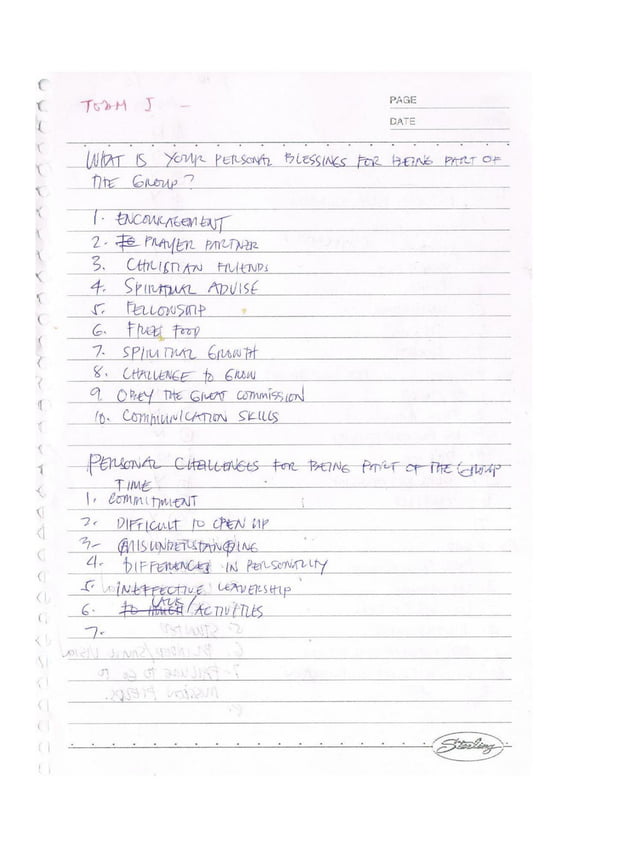 TEAM J -
PAGE
DATE
WHAT IS YOUR PERSONAL BLESSINGS FOR BEING PART OF
THE GROUP?
1. ENCOURAGEMENT
2. PRAYER PARTNER
3. CHRISTIAN FRIENDS
4. SPIRITUAL ADVISE
5. FELLOWSHIP
6. FREE FOOD
7. SPIRITUAL GROWTH
8. CHALLENGE to GROW
9. OBEY THE GREAT COMMISSION
10. COMMUNICATION SKILLS
PERSONAL CHALLENGES FOR BEING PART OF THE GROUP
TIME
1. COMMITMENT
2. DIFFICULT TO OPEN UP
3- MISUNDERSTANDING
4. DIFFERENCES IN PERSONALITY
5. INEFFECTIVE LEADERSHIP
6. LACK / ACTIVITIES
7-
Sterling